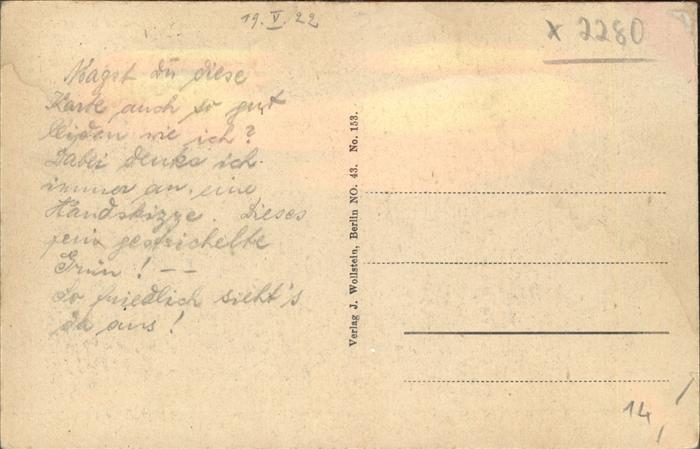 19.V.22
x 2280
Magst Du diese
Karte auch so gut
leiden wie ich?
Dabei denke ich
immer an eine
Handskizze. Dieses
fein gestrichelte
Grün! --
So friedlich sieht's
da aus!
Verlag J. Wollstein, Berlin NO. 43. No. 153.
14